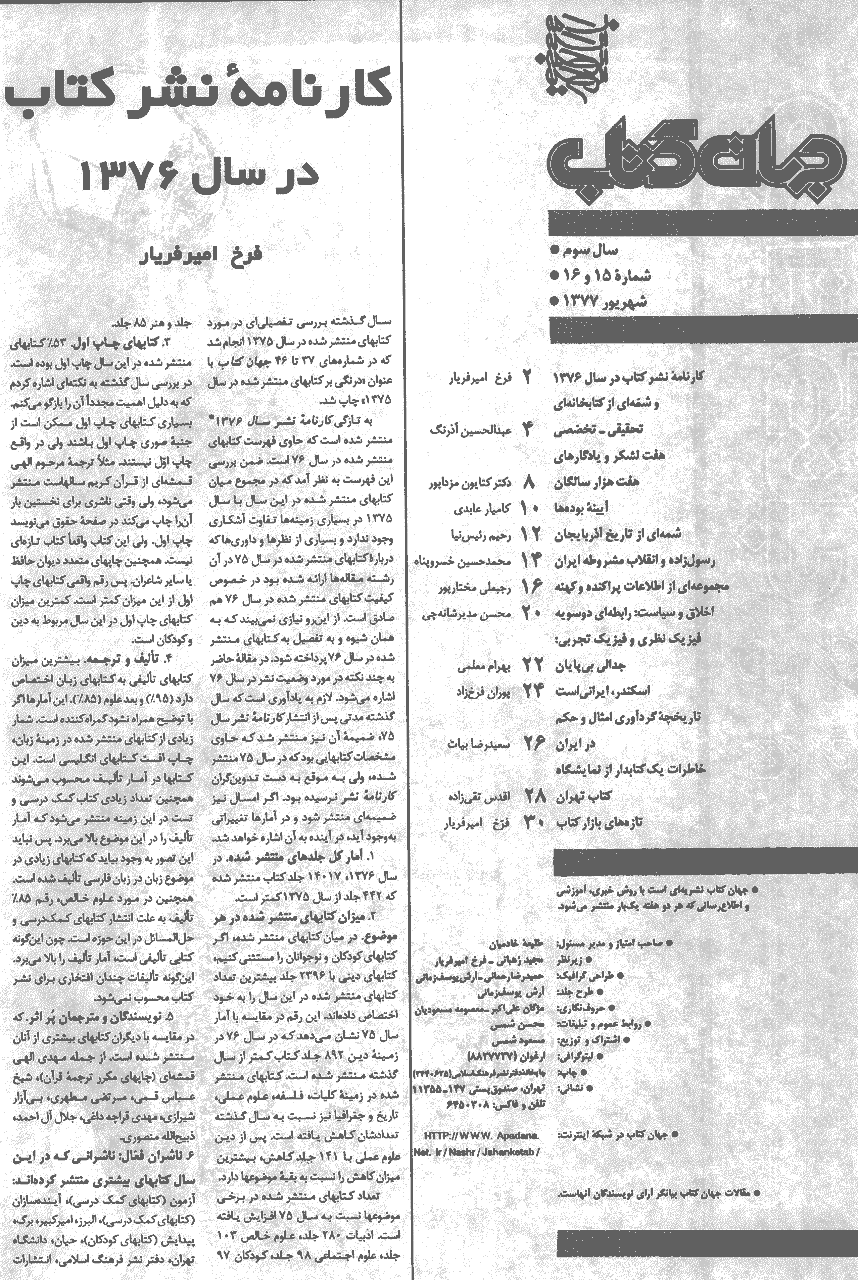 جهان کتاب
سال سوم ●
شمارهٔ ۱۵ و ۱۶ ●
شهریور ۱۳۷۷ ●
کارنامهٔ نشر کتاب در سال ۱۳۷۶ ۲ فرخ امیرفریار
و شمّه‌ای از کتابخانه‌ای
تحقیقی ـ تخصصی ۴ عبدالحسین آذرنگ
هفت لشکر و یادگارهای
هفت هزار سالگان ۸ دکتر کتایون مزداپور
آیینهٔ بوده‌ها ۱۰ کامیار عابدی
شمه‌ای از تاریخ آذربایجان ۱۲ رحیم رئیس‌نیا
رسول‌زاده و انقلاب مشروطه ایران ۱۴ محمدحسین خسروپناه
مجموعه‌ای از اطلاعات پراکنده و کهنه ۱۶ رجبعلی مختارپور
اخلاق و سیاست: رابطه‌ای دوسویه ۲۰ محسن مدیرشانه‌چی
فیزیک نظری و فیزیک تجربی:
جدالی بی‌پایان ۲۲ بهرام معلمی
اسکندر، ایرانی است ۲۴ پوران فرخ‌زاد
تاریخچهٔ گردآوری امثال و حکم
در ایران ۲۶ سعیدرضا بیات
خاطرات یک کتابدار از نمایشگاه
کتاب تهران ۲۸ اقدس تقی‌زاده
تازه‌های بازار کتاب ۳۰ فرخ امیرفریار
● جهان کتاب نشریه‌ای است با روش خبری، آموزشی
و اطلاع‌رسانی که هر دو هفته یک‌بار منتشر می‌شود.
● صاحب امتیاز و مدیر مسئول: طلیعهٔ خادمیان
● زیرنظر: مجید رُهبانی ـ فرخ امیرفریار
● طراحی گرافیک: حمیدرضا رحمانی ـ آرش یوسف‌زمانی
● طرح جلد: آرش یوسف‌زمانی
● حروف‌نگاری: مژگان علی‌اکبر ـ معصومه مسعودیان
● روابط عموم و تبلیغات: محسن شمس
● اشتراک و توزیع: مسعود شمس
● لیتوگرافی: ارغوان (۸۸۲۷۷۳۷)
● چاپ: چاپخانه دفتر نشر فرهنگ اسلامی (۳۴۴۰۶۲۵)
● نشانی: تهران، صندوق پستی ۱۴۷ـ۱۱۳۵۵
تلفن و فاکس: ۶۴۵۰۳۰۸
● جهان کتاب در شبکهٔ اینترنت: HTTP://WWW. Apadana.
Net. Ir / Nashr / Jahanketab /
● مقالات جهان کتاب بیانگر آرای نویسندگان آنهاست.
کارنامهٔ نشر کتاب
در سال ۱۳۷۶
فرخ امیرفریار
سال گذشته بررسی تفصیلی‌ای در مورد
کتابهای منتشر شده در سال ۱۳۷۵ انجام شد
که در شماره‌های ۳۷ تا ۴۶ جهان کتاب با
عنوان «درنگی بر کتابهای منتشر شده در سال
۱۳۷۵» چاپ شد.
به تازگی کارنامهٔ نشر سال ۱۳۷۶*
منتشر شده است که حاوی فهرست کتابهای
منتشر شده در سال ۷۶ است. ضمن بررسی
این فهرست به نظر آمد که در مجموع میان
کتابهای منتشر شده در این سال با سال
۱۳۷۵ در بسیاری زمینه‌ها تفاوت آشکاری
وجود ندارد و بسیاری از نظرها و داوری‌ها که
دربارهٔ کتابهای منتشر شده در سال ۷۵ در آن
رشته مقاله‌ها ارائه شده بود در خصوص
کیفیت کتابهای منتشر شده در سال ۷۶ هم
صادق است. از این‌رو نیازی نمی‌بیند که به
همان شیوه و به تفصیل به کتابهای منتشر
شده در سال ۷۶ پرداخته شود. در مقالهٔ حاضر
به چند نکته در مورد وضعیت نشر در سال ۷۶
اشاره می‌شود. لازم به یادآوری است که سال
گذشته مدتی پس از انتشار کارنامهٔ نشر سال
۷۵، ضمیمهٔ آن نیز منتشر شد که حاوی
مشخصات کتابهایی بود که در سال ۷۵ منتشر
شده، ولی به موقع به دست تدوین‌گران
کارنامهٔ نشر نرسیده بود. اگر امسال نیز
ضمیمه‌ای منتشر شود و در آمارها تغییراتی
به‌وجود آید، در آینده به آن اشاره خواهد شد.
۱. آمار کل جلدهای منتشر شده. در
سال ۱۳۷۶، ۱۴۰۱۷ جلد کتاب منتشر شده
که ۴۴۲ جلد از سال ۱۳۷۵ کمتر است.
۲. میزان کتابهای منتشر شده در هر
موضوع. در میان کتابهای منتشر شده، اگر
کتابهای کودکان و نوجوانان را مستثنی کنیم،
کتابهای دینی با ۲۳۹۶ جلد بیشترین تعداد
کتابهای منتشر شده در این سال را به خود
اختصاص داده‌اند. این رقم در مقایسه با آمار
سال ۷۵ نشان می‌دهد که در سال ۷۶ در
زمینهٔ دین ۸۹۲ جلد کتاب کمتر از سال
گذشته منتشر شده است. کتابهای منتشر
شده در زمینهٔ کلیات، فلسفه، علوم عملی،
تاریخ و جغرافیا نیز نسبت به سال گذشته
تعدادشان کاهش یافته است. پس از دین
علوم عملی با ۱۴۱ جلد کاهش، بیشترین
میزان کاهش را نسبت به بقیهٔ موضوعها دارد.
تعداد کتابهای منتشر شده در برخی
موضوعها نسبت به سال ۷۵ افزایش یافته
است. ادبیات ۲۸۰ جلد، علوم خالص ۱۰۳
جلد، علوم اجتماعی ۹۸ جلد، کودکان ۹۷
جلد و هنر ۸۵ جلد.
۳. کتابهای چاپ اول. ۵۳٪ کتابهای
منتشر شده در این سال چاپ اول بوده است.
در بررسی سال گذشته به نکته‌ای اشاره کردم
که به دلیل اهمیت مجدداً آن را بازگو می‌کنم.
بسیاری کتابهای چاپ اول ممکن است از
جنبهٔ صوری چاپ اول باشند ولی در واقع
چاپ اوّل نیستند. مثلاً ترجمهٔ مرحوم الهی
قمشه‌ای از قرآن کریم سالهاست منتشر
می‌شود، ولی وقتی ناشری برای نخستین بار
آن‌را چاپ می‌کند در صفحهٔ حقوق می‌نویسد
چاپ اول. ولی این کتاب واقعاً کتاب تازه‌ای
نیست. همچنین چاپهای متعدد دیوان حافظ
یا سایر شاعران. پس رقم واقعی کتابهای چاپ
اول از این میزان کمتر است. کمترین میزان
کتابهای چاپ اول در این سال مربوط به دین
و کودکان است.
۴. تألیف و ترجمه. بیشترین میزان
کتابهای تألیفی به کتابهای زبان اختصاص
دارد (۹۵٪) و بعد علوم (۸۵٪). این آمارها اگر
با توضیح همراه نشود گمراه‌کننده است. شمار
زیادی از کتابهای منتشر شده در زمینهٔ زبان،
چاپ افست کتابهای انگلیسی است. این
کتابها در آمار تألیف محسوب می‌شوند
همچنین تعداد زیادی کتاب کمک درسی و
تست در این زمینه منتشر می‌شود که آمار
تألیف را در این موضوع بالا می‌برد. پس نباید
این تصور به وجود بیاید که کتابهای زیادی در
موضوع زبان در زبان فارسی تألیف شده است.
همچنین در مورد علوم خالص، رقم ۸۵٪
تألیف به علت انتشار کتابهای کمک‌درسی و
حل‌المسائل در این حوزه است. چون این‌گونه
کتابی تألیفی است، آمار تألیف را بالا می‌برد.
این‌گونه تألیفات چندان افتخاری برای نشر
کتاب محسوب نمی‌شود.
۵. نویسندگان و مترجمان پُر اثر. که
در مقایسه با دیگران کتابهای بیشتری از آنان
منتشر شده است. از جمله مهدی الهی
قمشه‌ای (چاپهای مکرر ترجمهٔ قرآن)، شیخ
عباس قمی، مرتضی مطهری، بی‌آزار
شیرازی، مهدی قراچه داغی، جلال آل احمد،
ذبیح‌الله منصوری.
۶. ناشران فعّال: ناشرانی که در این
سال کتابهای بیشتری منتشر کرده‌اند:
آزمون (کتابهای کمک درسی)، آینده‌سازان
(کتابهای کمک درسی)، البرز، امیرکبیر، برگ،
پیدایش (کتابهای کودکان)، حیان، دانشگاه
تهران، دفتر نشر فرهنگ اسلامی، انتشارات